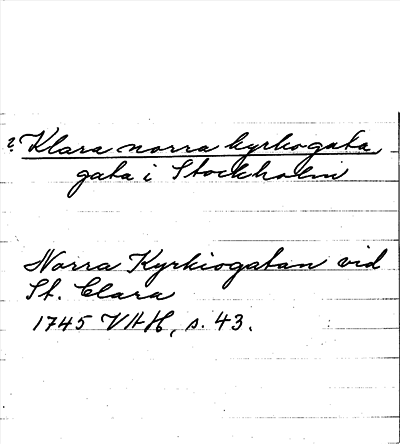 ? Klara norra kyrkogata,
gata i Stockholm
Norra Kyrkiogatan vid
St. Clara
1745 VHH, s. 43.